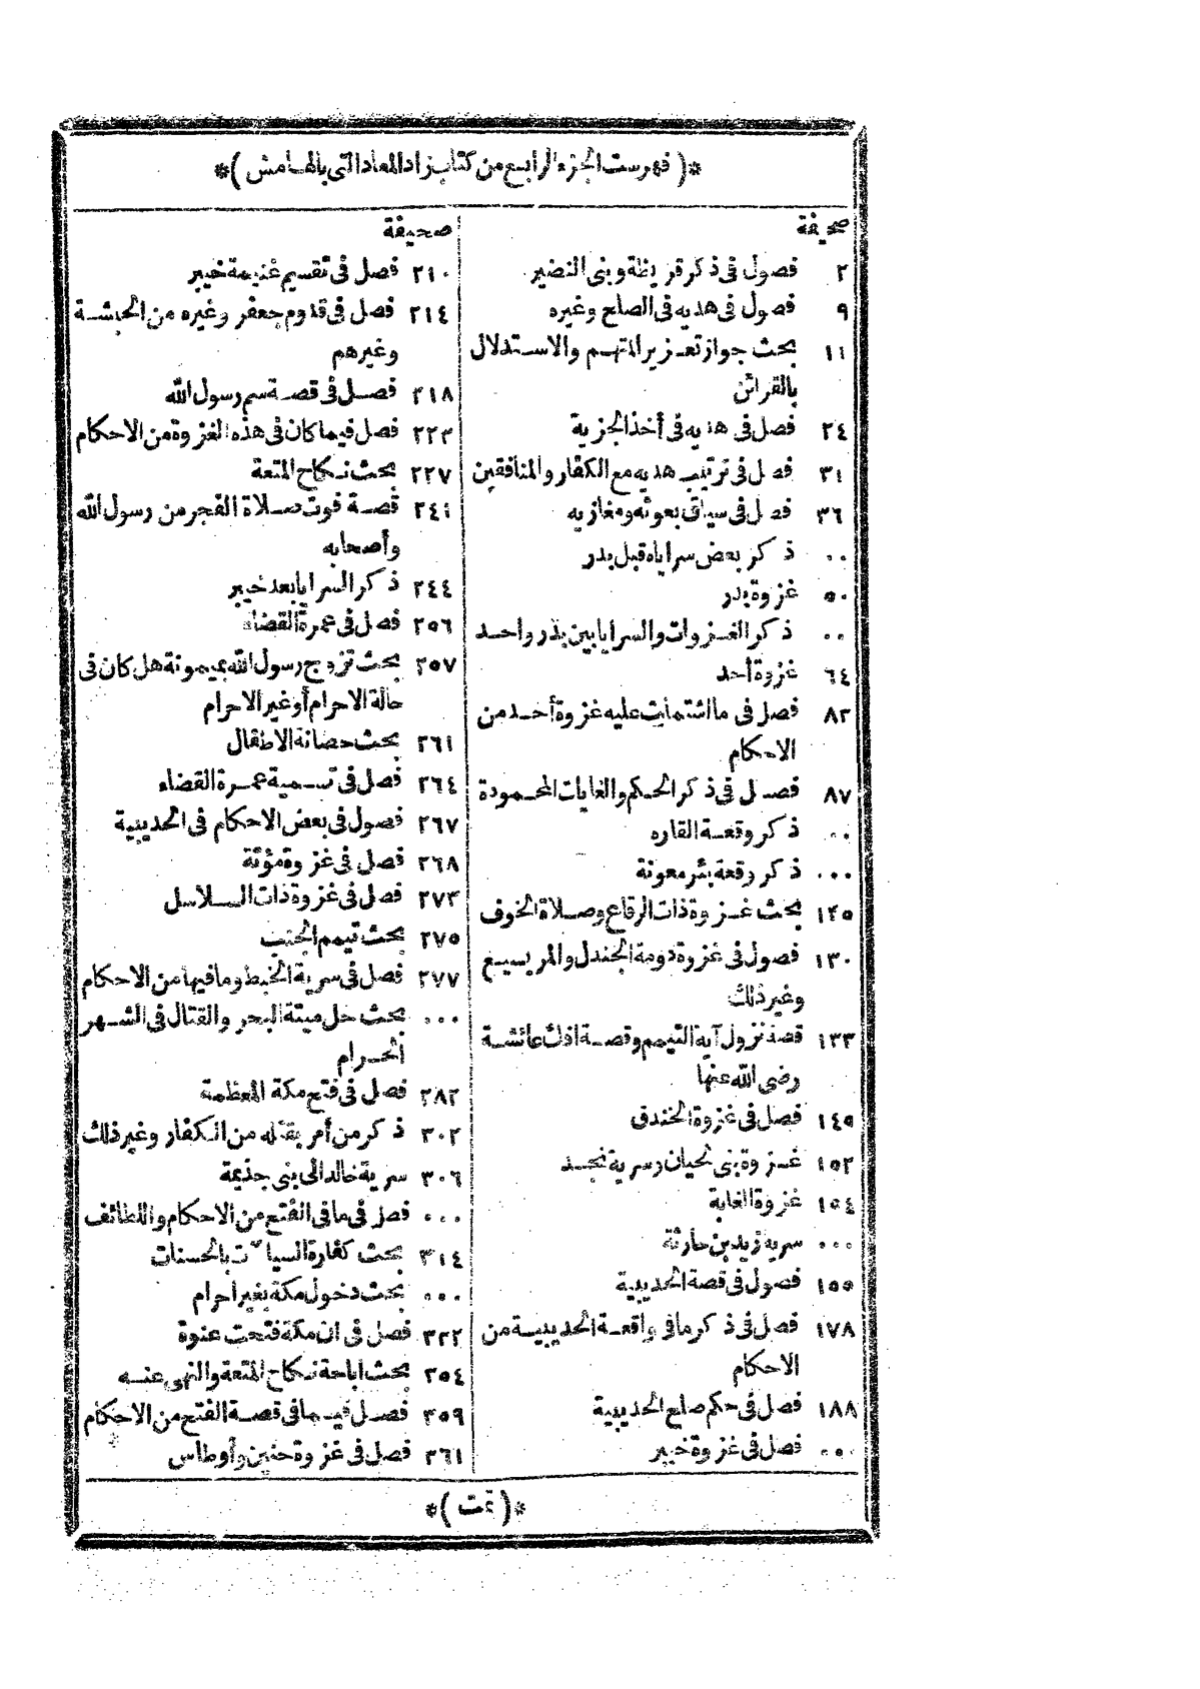 *(فهرست الجزء الرابع من كتاب زاد المعاد التى بالهامش)*
صحيفة
٢ فصول فى ذكر قريظة وبنى النضير
٩ فصول فى هديه فى الصلح وغيره
١١ بحث جواز تعزير المتهم والاستدلال
بالقرائن
٢٤ فصل فى هديه فى أخذ الجزية
٣١ فصل فى ترتيب هديه مع الكفار والمنافقين
٣٦ فصل فى سياق بعوثه ومغازيه
٠٠ ذكر بعض سراياه قبل بدر
٥٠ غزوة بدر
٠٠ ذكر الغزوات والسرايا بين بدر واحد
٦٤ غزوة أحد
٨٢ فصل فى ما اشتملت عليه غزوة أحد من
الاحكام
٨٧ فصل فى ذكر الحكم والغايات المحمودة
٠٠ ذكر وقعة القاره
٠٠٠ ذكر وقعة بئر معونة
١٢٥ بحث غزوة ذات الرقاع وصلاة الخوف
١٣٠ فصول فى غزوة دومة الجندل والمريسيع
وغير ذلك
١٣٣ قصة نزول آية التيمم وقصة افك عائشة
رضى الله عنها
١٤٥ فصل فى غزوة الخندق
١٥٢ غزوة بنى لحيان وسرية نجد
١٥٤ غزوة الغابة
٠٠٠ سرية زيد بن حارثة
١٥٥ فصول فى قصة الحديبية
١٧٨ فصل فى ذكر ما فى واقعة الحديبية من
الاحكام
١٨٨ فصل فى حكم صلح الحديبية
٠٠٠ فصل فى غزوة خيبر
صحيفة
٢١٠ فصل فى تقسيم غنيمة خيبر
٢١٤ فصل فى قدوم جعفر وغيره من الحبشة
وغيرهم
٢١٨ فصل فى قصة سم رسول الله
٢٢٣ فصل فيما كان فى هذه الغزوة من الاحكام
٢٢٧ بحث نكاح المتعة
٢٤١ قصة فوت صلاة الفجر من رسول الله
وأصحابه
٢٤٤ ذكر السرايا بعد خيبر
٢٥٦ فصل فى عمرة القضاء
٢٥٧ بحث تزوج رسول الله بميمونة هل كان فى
حالة الاحرام أو غير الاحرام
٢٦١ بحث حضانة الاطفال
٢٦٤ فصل فى تسمية عمرة القضاء
٢٦٧ فصول فى بعض الاحكام فى الحديبية
٢٦٨ فصل فى غزوة مؤتة
٢٧٣ فصل فى غزوة ذات السلاسل
٢٧٥ بحث تيمم الجنب
٢٧٧ فصل فى سرية الخبط وما فيها من الاحكام
٠٠٠ بحث حل ميتة البحر والقتال فى الشهر
الحرام
٢٨٢ فصل فى فتح مكة المعظمة
٣٠٢ ذكر من أمر بقتله من الكفار وغير ذلك
٣٠٦ سرية خالد الى بنى جذيمة
٠٠٠ فصل فى ما فى الفتح من الاحكام واللطائف
٣١٤ بحث كفارة السيآت بالحسنات
٠٠٠ بحث دخول مكة بغير احرام
٣٢٢ فصل فى ان مكة فتحت عنوة
٣٥٤ بحث اباحة نكاح المتعة والنهى عنه
٣٥٩ فصل فيما فى قصة الفتح من الاحكام
٣٦١ فصل فى غزوة حنين وأوطاس
*(تمت)*